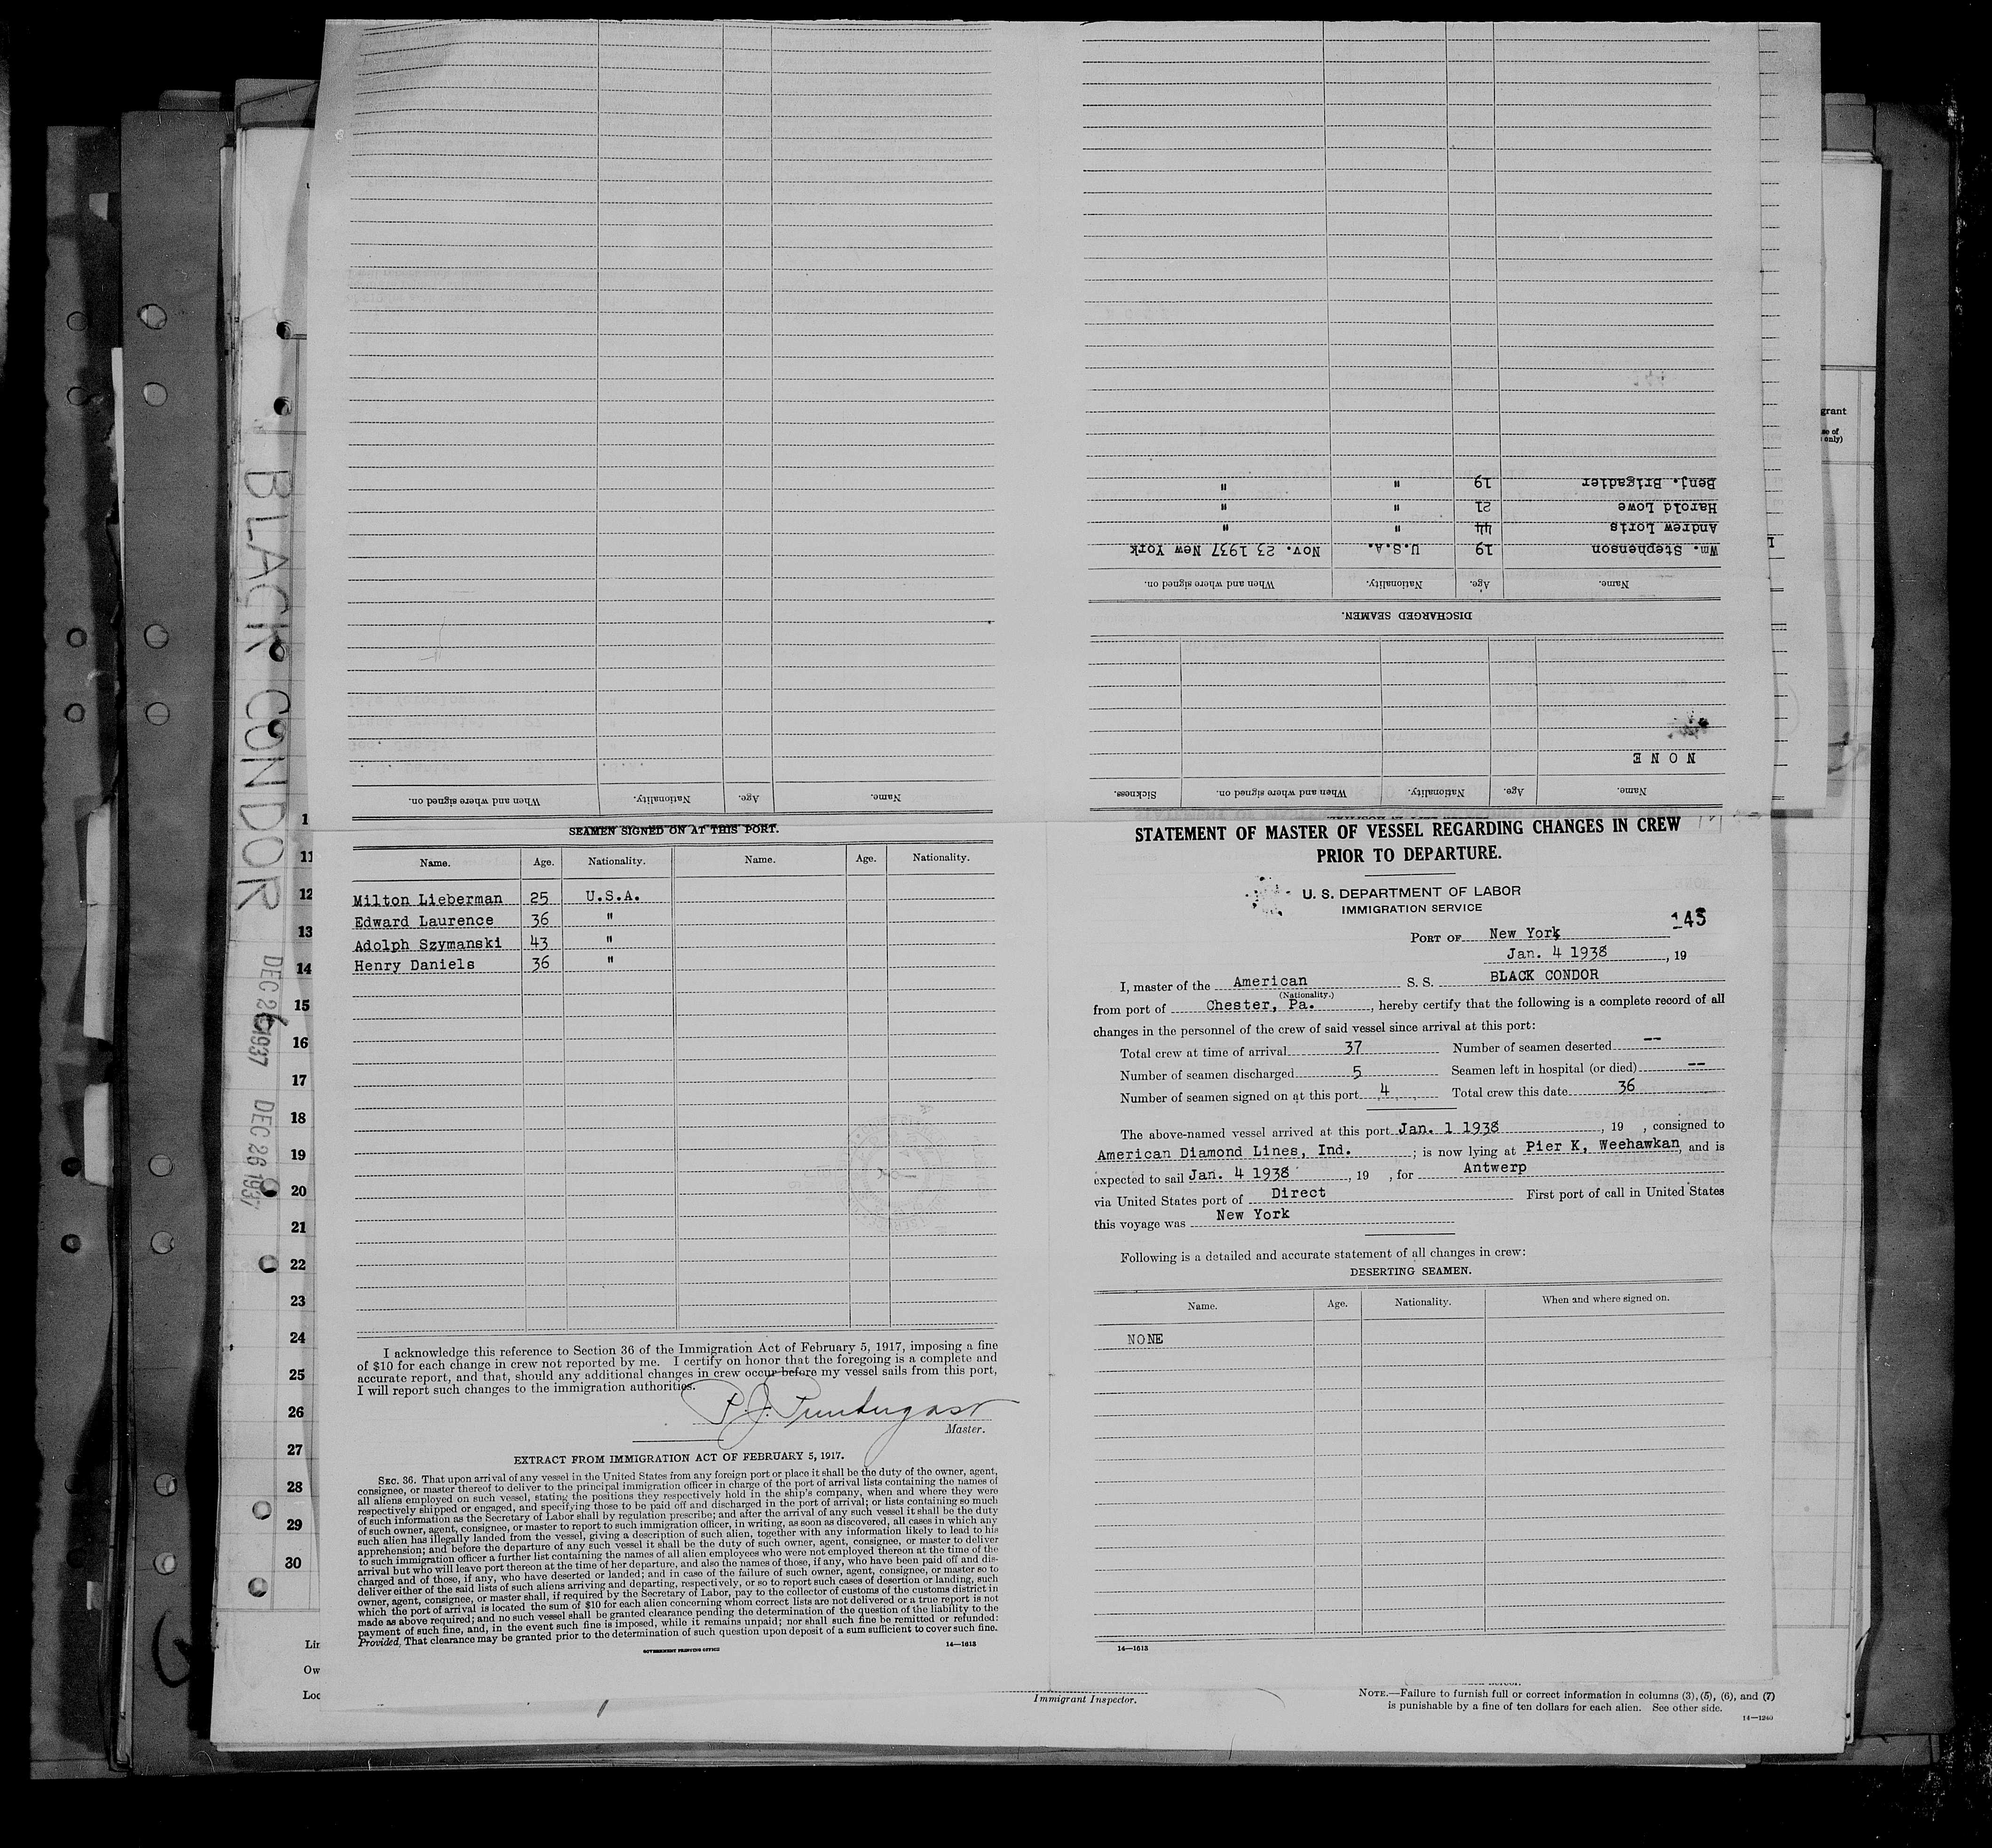 STATEMENT OF MASTER OF VESSEL REGARDING CHANGES IN CREW
PRIOR TO DEPARTURE.
U. S. DEPARTMENT OF LABOR
IMMIGRATION SERVICE
145
PORT OF New York
Jan. 4 1938, 19
I, master of the American S. S. BLACK CONDOR
(Nationality.)
from port of Chester, Pa., hereby certify that the following is a complete record of all
changes in the personnel of the crew of said vessel since arrival at this port:
Total crew at time of arrival 37 Number of seamen deserted --
Number of seamen discharged 5 Seamen left in hospital (or died) --
Number of seamen signed on at this port 4 Total crew this date 36
The above-named vessel arrived at this port Jan. 1 1938, 19 , consigned to
American Diamond Lines, Ind. ; is now lying at Pier K, Weehawkan, and is
expected to sail Jan. 4 1938, 19 , for Antwerp
via United States port of Direct First port of call in United States
this voyage was New York
Following is a detailed and accurate statement of all changes in crew:
DESERTING SEAMEN.
Name. Age. Nationality. When and where signed on.
NONE
14—1613
Name. Age. Nationality. When and where signed on. Sickness.
NONE
DISCHARGED SEAMEN.
Name. Age. Nationality. When and where signed on.
Wm. Stephenson 19 U.S.A. Nov. 23 1937 New York
Andrew Loris 44 " "
Harold Lowe 21 " "
Benj. Brigadier 19 " "
Name. Age. Nationality. When and where signed on.
SEAMEN SIGNED ON AT THIS PORT.
Name. Age. Nationality. Name. Age. Nationality.
Milton Lieberman 25 U.S.A.
Edward Laurence 36 "
Adolph Szymanski 43 "
Henry Daniels 36 "
I acknowledge this reference to Section 36 of the Immigration Act of February 5, 1917, imposing a fine
of $10 for each change in crew not reported by me. I certify on honor that the foregoing is a complete and
accurate report, and that, should any additional changes in crew occur before my vessel sails from this port,
I will report such changes to the immigration authorities.
Master.
EXTRACT FROM IMMIGRATION ACT OF FEBRUARY 5, 1917.
SEC. 36. That upon arrival of any vessel in the United States from any foreign port or place it shall be the duty of the owner, agent,
consignee, or master thereof to deliver to the principal immigration officer in charge of the port of arrival lists containing the names of
all aliens employed on such vessel, stating the positions they respectively hold in the ship's company, when and where they were
respectively shipped or engaged, and specifying those to be paid off and discharged in the port of arrival; or lists containing so much
of such information as the Secretary of Labor shall by regulation prescribe; and after the arrival of any such vessel it shall be the duty
of such owner, agent, consignee, or master to report to such immigration officer, in writing, as soon as discovered, all cases in which any
such alien has illegally landed from the vessel, giving a description of such alien, together with any information likely to lead to his
apprehension; and before the departure of any such vessel it shall be the duty of such owner, agent, consignee, or master to deliver
to such immigration officer a further list containing the names of all alien employees who were not employed thereon at the time of the
arrival but who will leave port thereon at the time of her departure, and also the names of those, if any, who have been paid off and dis-
charged and of those, if any, who have deserted or landed; and in case of the failure of such owner, agent, consignee, or master so to
deliver either of the said lists of such aliens arriving and departing, respectively, or so to report such cases of desertion or landing, such
owner, agent, consignee, or master shall, if required by the Secretary of Labor, pay to the collector of customs of the customs district in
which the port of arrival is located the sum of $10 for each alien concerning whom correct lists are not delivered or a true report is not
made as above required; and no such vessel shall be granted clearance pending the determination of the question of the liability to the
payment of such fine, and, in the event such fine is imposed, while it remains unpaid; nor shall such fine be remitted or refunded:
Provided, That clearance may be granted prior to the determination of such question upon deposit of a sum sufficient to cover such fine.
GOVERNMENT PRINTING OFFICE 14—1613
Immigrant Inspector.
NOTE.—Failure to furnish full or correct information in columns (3), (5), (6), and (7)
is punishable by a fine of ten dollars for each alien. See other side.
14—1240
BLACK CONDOR DEC 26 1937 DEC 26 1937
1
11
12
13
14
15
16
17
18
19
20
21
22
23
24
25
26
27
28
29
30
Lin
Ow
Loc
grant
se of
only)